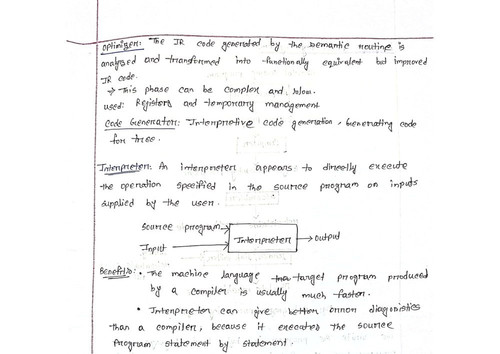 Optimizer: The IR code generated by the semantic routine is
analysed and transformed into functionally equivalent but improved
IR code.
→ This phase can be complex and slow.
used: Registers and temporary management
Code Generator: Interpretive code generation, Generating code
for tree.
Interpreter: An interpreter appears to directly execute
the operation specified in the source program on inputs
supplied by the user.
Source program
Input
Interpreter
output
Benefits: • The machine language target program produced
by a compiler is usually much faster.
• Interpreter can give better error diagonistics
than a compiler, because it executes the source
program statement by statement.